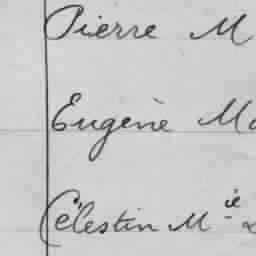 Pierre M
Eugène Ma
Célestin M ie